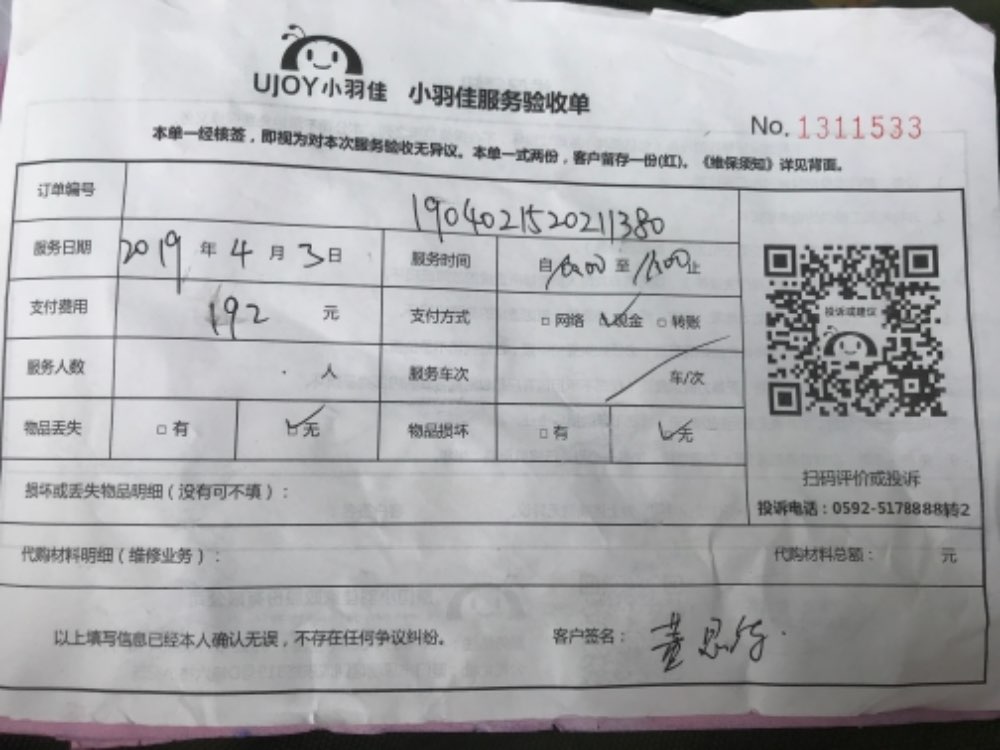 UJOY小羽佳 小羽佳服务验收单
No. 1311533
本单一经核签，即视为对本次服务验收无异议。本单一式两份，客户留存一份(红)。《维保须知》详见背面。
订单编号 1904021520211380
服务日期 2019 年 4 月 3 日 服务时间 自 至 止
支付费用 192 元 支付方式 □网络 ☑现金 □转账
服务人数 人 服务车次 车/次
物品丢失 □有 ☑无 物品损坏 □有 ☑无
投诉或建议
扫码评价或投诉
投诉电话：0592-5178888转2
损坏或丢失物品明细（没有可不填）：
代购材料明细（维修业务）： 代购材料总额： 元
以上填写信息已经本人确认无误，不存在任何争议纠纷。 客户签名：